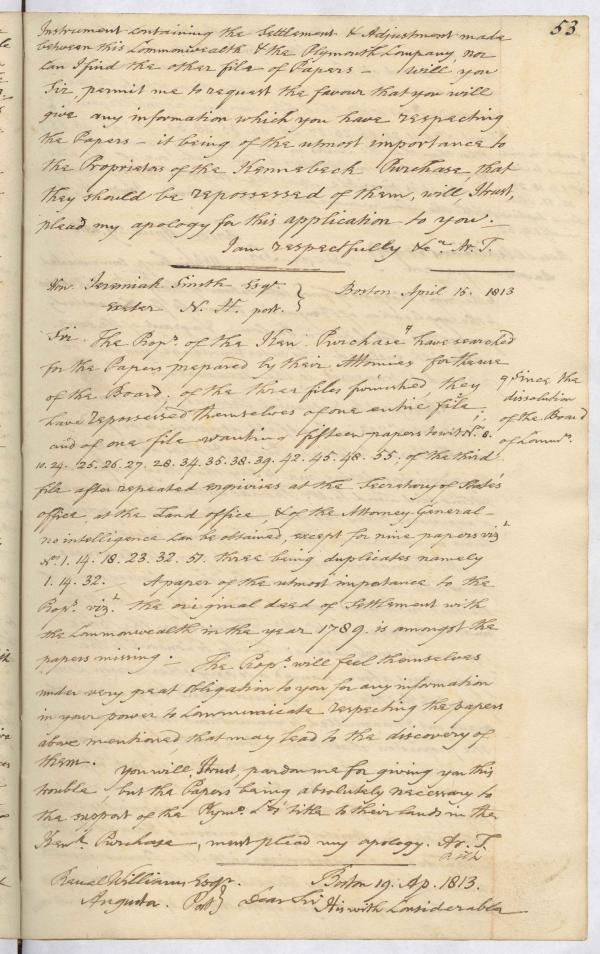 53
Instrument containing the Settlement & Adjustment made
between this Commonwealth & the Plymouth Company, nor
can I find the other file of Papers – Will you
Sir, permit me to request the favour that you will
give any information which you have respecting
the Papers – it being of the utmost importance to
the Proprietors of the Kennebeck Purchase, that
they should be repossessed of them, will, I trust,
plead my apology for this application to you. –
I am respectfully &c. Ar. T.
Hon. Jeremiah Smith Esqr.
Exeter N. H. post. } Boston April 16. 1813
Sir. The Propr. of the Ken. Purchase have searched
for the Papers prepared by their Attornies for the use
of the Board, of the three files furnished, they
have repossessed themselves of one entire file;
and of one file wanting fifteen papers to wit No. 8.
10. 24. 25. 26. 27. 28. 34. 35. 38. 39. 42. 45. 48. 55. of the third
file after repeated enquiries at the Secretary of State's
office, at the Land office, & of the Attorney General –
no intelligence can be obtained, except for nine papers vizt.
No. 1. 14. 18. 23. 32. 57. three being duplicates namely
1. 14. 32. – A paper of the utmost importance to the
Props. vizt. the original deed of Settlement with
the Commonwealth in the year 1789. is amongst the
papers missing. – The Props. will feel themselves
under very great obligation to you for any information
in your power to communicate respecting the papers
above mentioned that may lead to the discovery of
them. You will, I trust, pardon me for giving you this
trouble, but the Papers being absolutely necessary to
the support of the Plymo. Co's title to their lands in the
Kenk. Purchase –, must plead my apology. Ar. T.
Since the
dissolution
of the Board
of Commrs.
Reuel Williams Esqr. Boston 19. Ap. 1813.
Augusta. Post } Dear Sir
It is with considerable